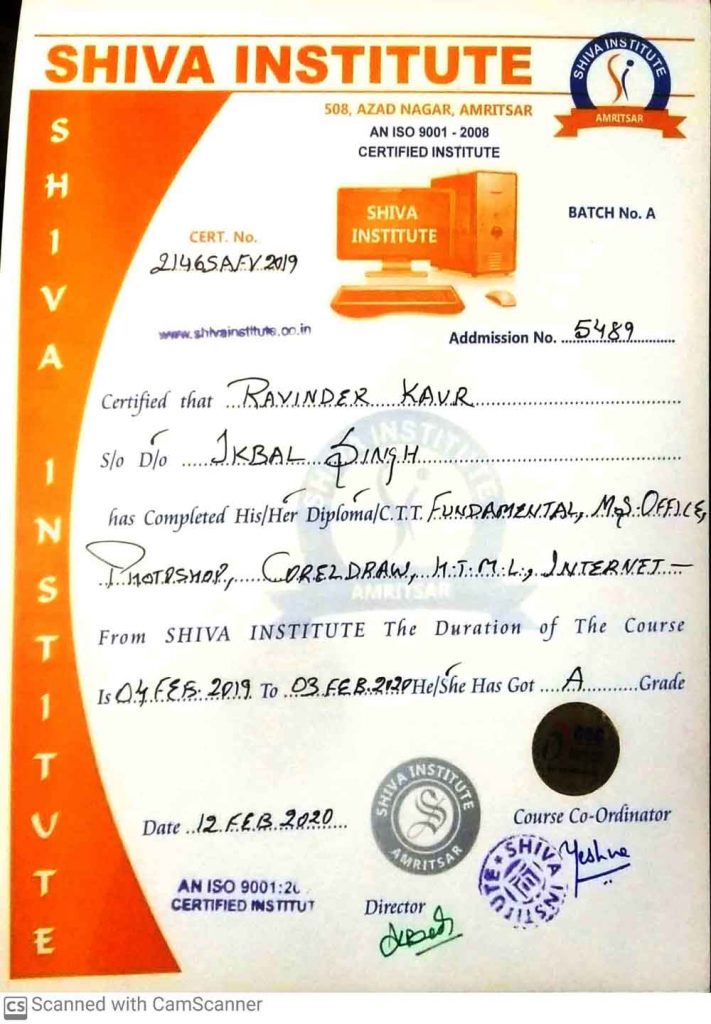 SHIVA INSTITUTE
SHIVA INSTITUTE
AMRITSAR
508, AZAD NAGAR, AMRITSAR
AN ISO 9001 - 2008
CERTIFIED INSTITUTE
SHIVA
INSTITUTE
BATCH No. A
CERT. No.
2146SAFV2019
www.shivainstitute.co.in
Addmission No. 5489
Certified that RAVINDER KAUR
S/o D/o IKBAL SINGH
has Completed His/Her Diploma/C.T.T. FUNDAMENTAL, M.S.OFFICE,
PHOTOSHOP, CORELDRAW, H.T.M.L., INTERNET —
From SHIVA INSTITUTE The Duration of The Course
Is 04 FEB. 2019 To 03 FEB. 2020 He/She Has Got A Grade
SHIVA INSTITUTE
SHIVA INSTITUTE
AMRITSAR
Date 12 FEB 2020
Course Co-Ordinator
Yeshna
SHIVA INSTITUTE
AN ISO 9001:20
CERTIFIED INSTITUT
Director
CS Scanned with CamScanner